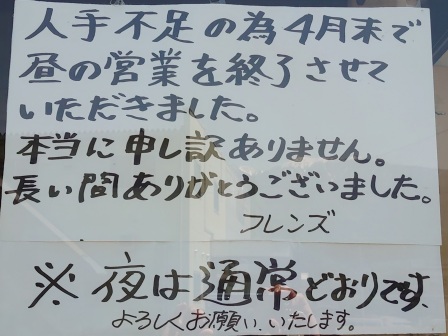 人手不足の為4月末で
昼の営業を終了させて
いただきました。
本当に申し訳ありません。
長い間ありがとうございました。
フレンズ
※夜は通常どおりです。
よろしくお願いいたします。